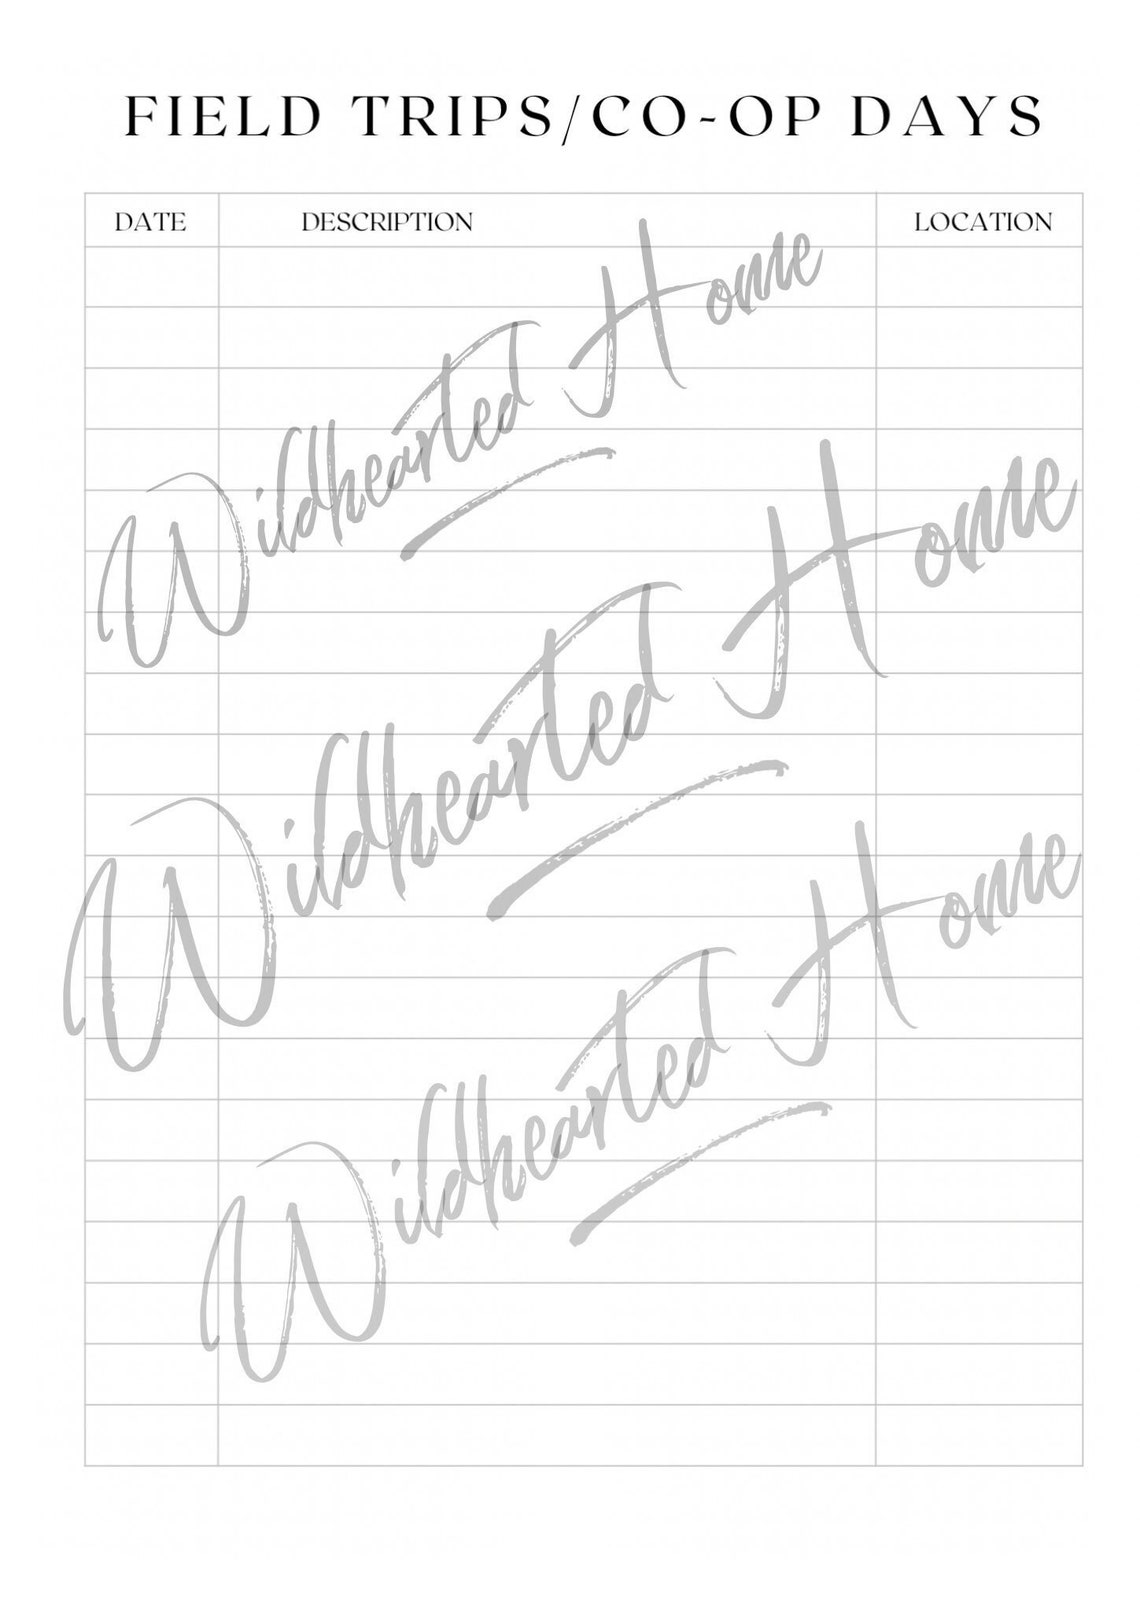 FIELD TRIPS/CO-OP DAYS
DATE DESCRIPTION LOCATION
Wildhearted Home
Wildhearted Home
Wildhearted Home